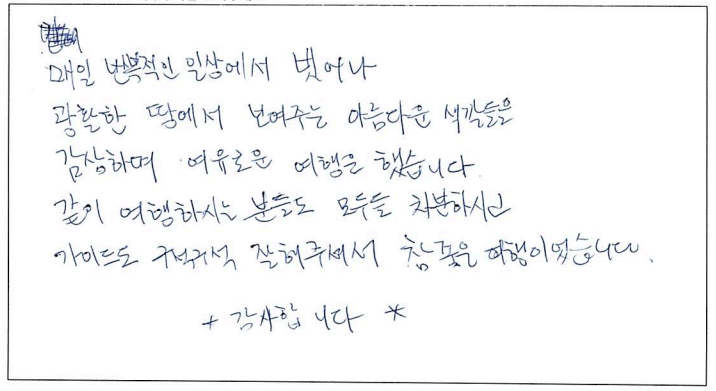 매일 반복적인 일상에서 벗어나
광활한 땅에서 보여주는 아름다운 색깔들을
감상하며 여유로운 여행을 했습니다.
같이 여행하시는 분들도 모두들 차분하시고
가이드도 구석구석 잘해주셔서 참 좋은 여행이었습니다.
* 감사합니다 *